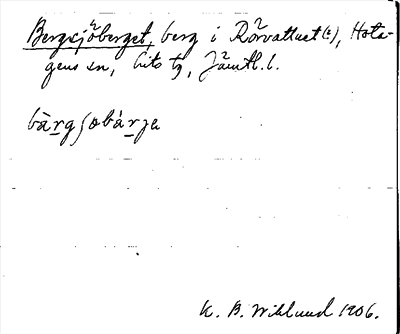 Bergsjöberget, berg i Rörvattnet(:), Hota-
gens sn, Lits tg, Jämtl. l.
bàrgʃobárje
K. B. Wiklund 1906.